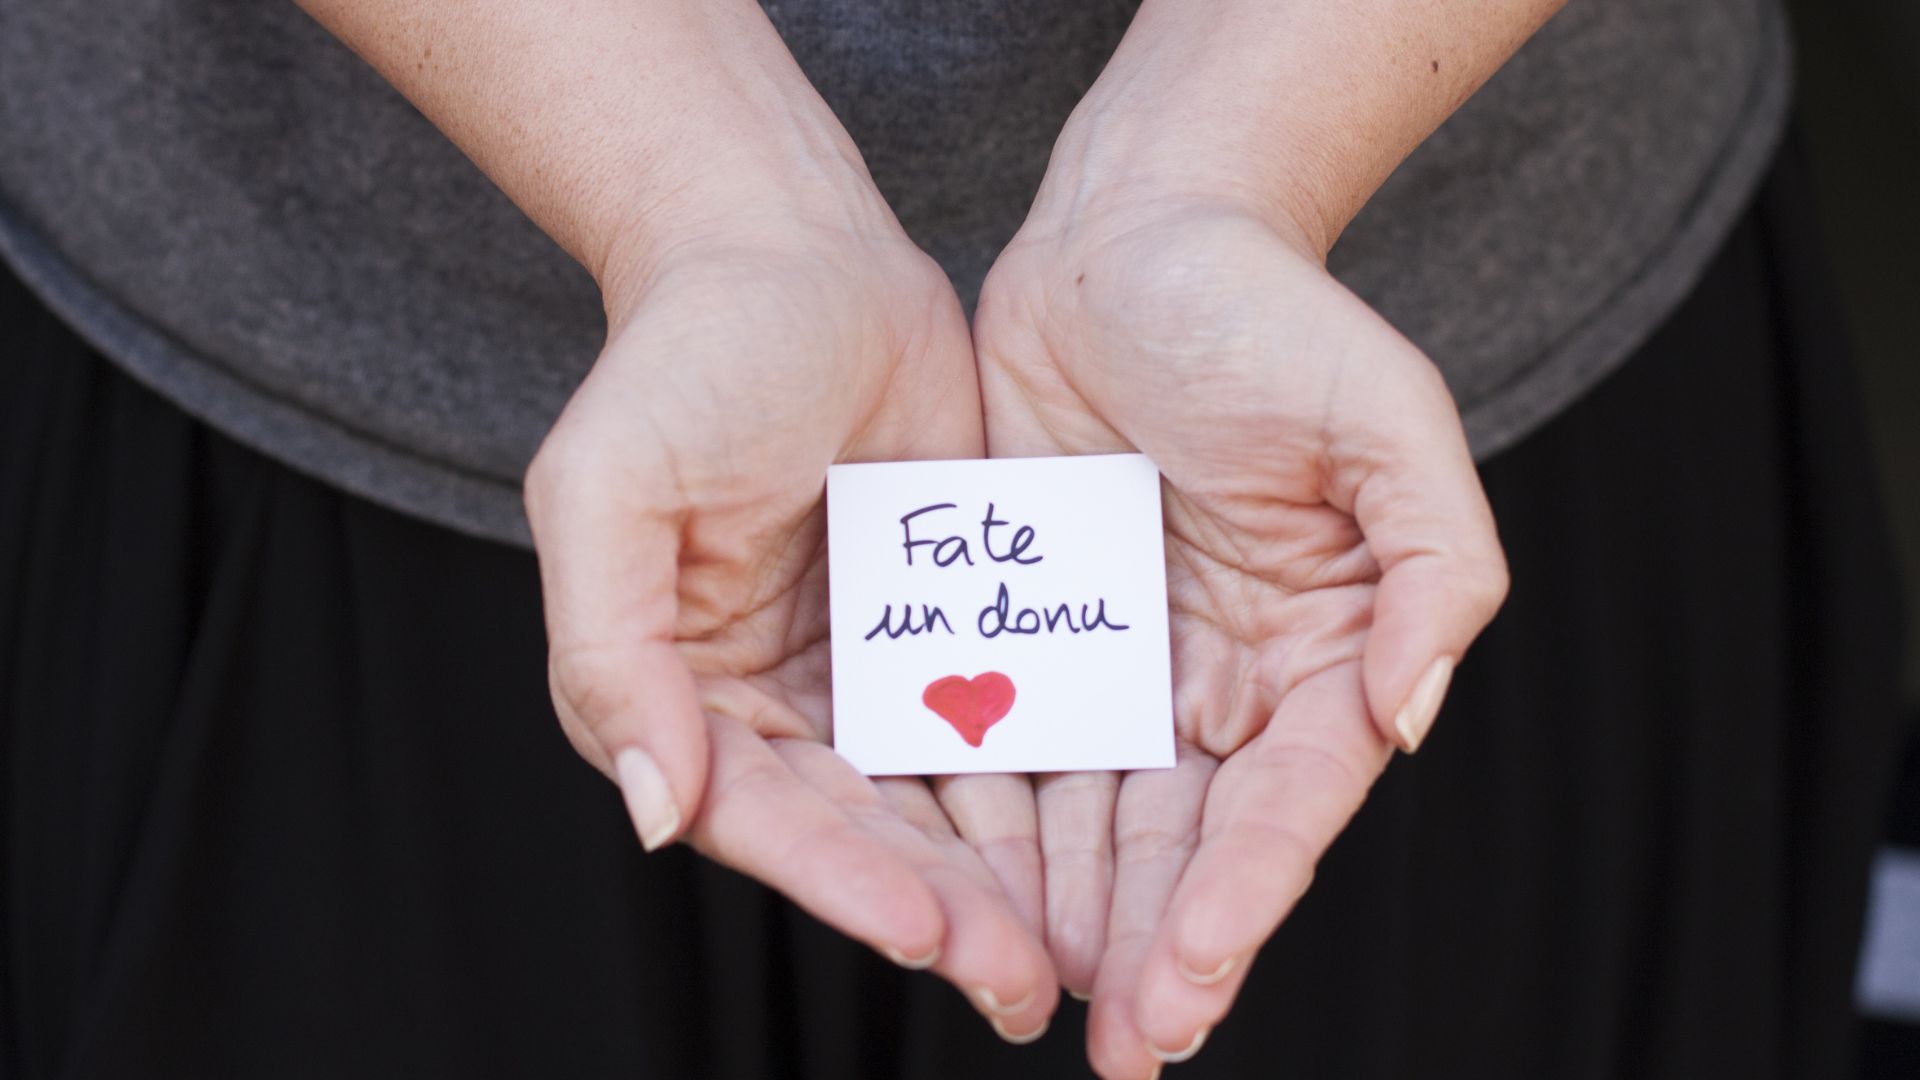 Fate
un donu